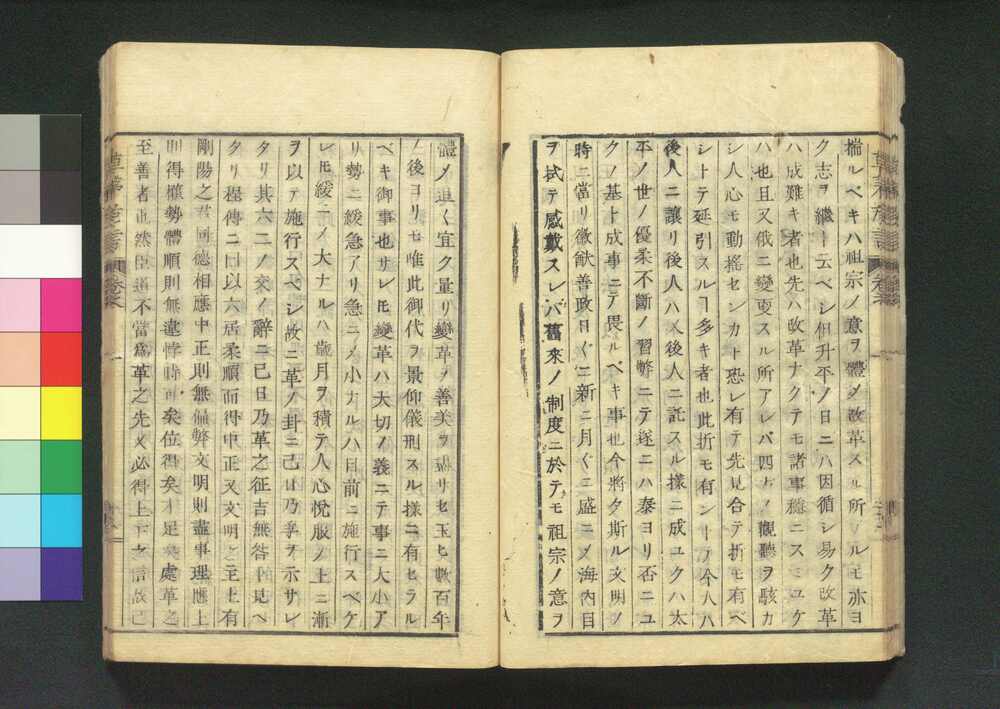 揣ルベキハ祖宗ノ意ヲ體メ改革スル所ノルモ亦ヨ
ク志ヲ繼ト云ベシ但升平ノ日ニハ因循シ易ク改革
ハ成難キ者也先ハ改革ナクテモ諸事穩ニスミユケ
ハ也且又俄ニ變更スル所アレバ四方ノ觀聽ヲ駭カ
シ人心モ動搖センカト恐レ有テ先見合テ折モ有ベ
シトテ延引スルヿ多キ者也此折モ有ントノ今人ハ
後人ニ讓リ後人ハ又後人ニ託スル樣ニ成ユクハ太
平ノ世ノ優柔不斷ノ習弊ニテ遂ニハ泰ヨリ否ニユ
クノ基ト成事ニテ畏ルベキ事也今將タ斯ル文明ノ
時ニ當リ徽猷善政日ぐニ新ニ月ぐニ盛ニメ海內目
ヲ拭テ感戴スレバ舊來ノ制度ニ於テモ祖宗ノ意ヲ
體メ追く宜ク量リ變革ノ善美ヲ盡サセ玉ヒ數百年
ノ後ヨリモ唯此御代ヲ景仰儀刑スル樣ニ有セラル
ベキ御事也サレ𪜈變革ハ大切ノ義ニテ事ニ大小ア
リ勢ニ緩急アリ急ニメ小ナルハ目前ニ施行スベケ
レ𪜈緩ニメ大ナルハ歲月ヲ積テ人心悅服ノ上ニ漸
ヲ以テ施行スベシ故ニ革ノ卦ニ己日乃孚ヲ示サレ
タリ其六二ノ爻ノ辭ニ己日乃革之征吉無咎ト見ヘ
タリ程傳ニ曰以六居柔順而得中正又文明之主上有
剛陽之君同德相應中正則無偏弊文明則盡事理應上
則得權勢體順則無違悖時可矣位得矣才足矣處革之
至善者也然臣道不當爲革之先又必得上下之信故己